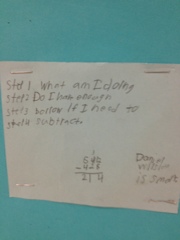 Step 1. What am I doing
step 2 Do I have enough
step 3 borrow if I need to
step 4 subtract
1
- 4 2 8
2 1 4
is Smart